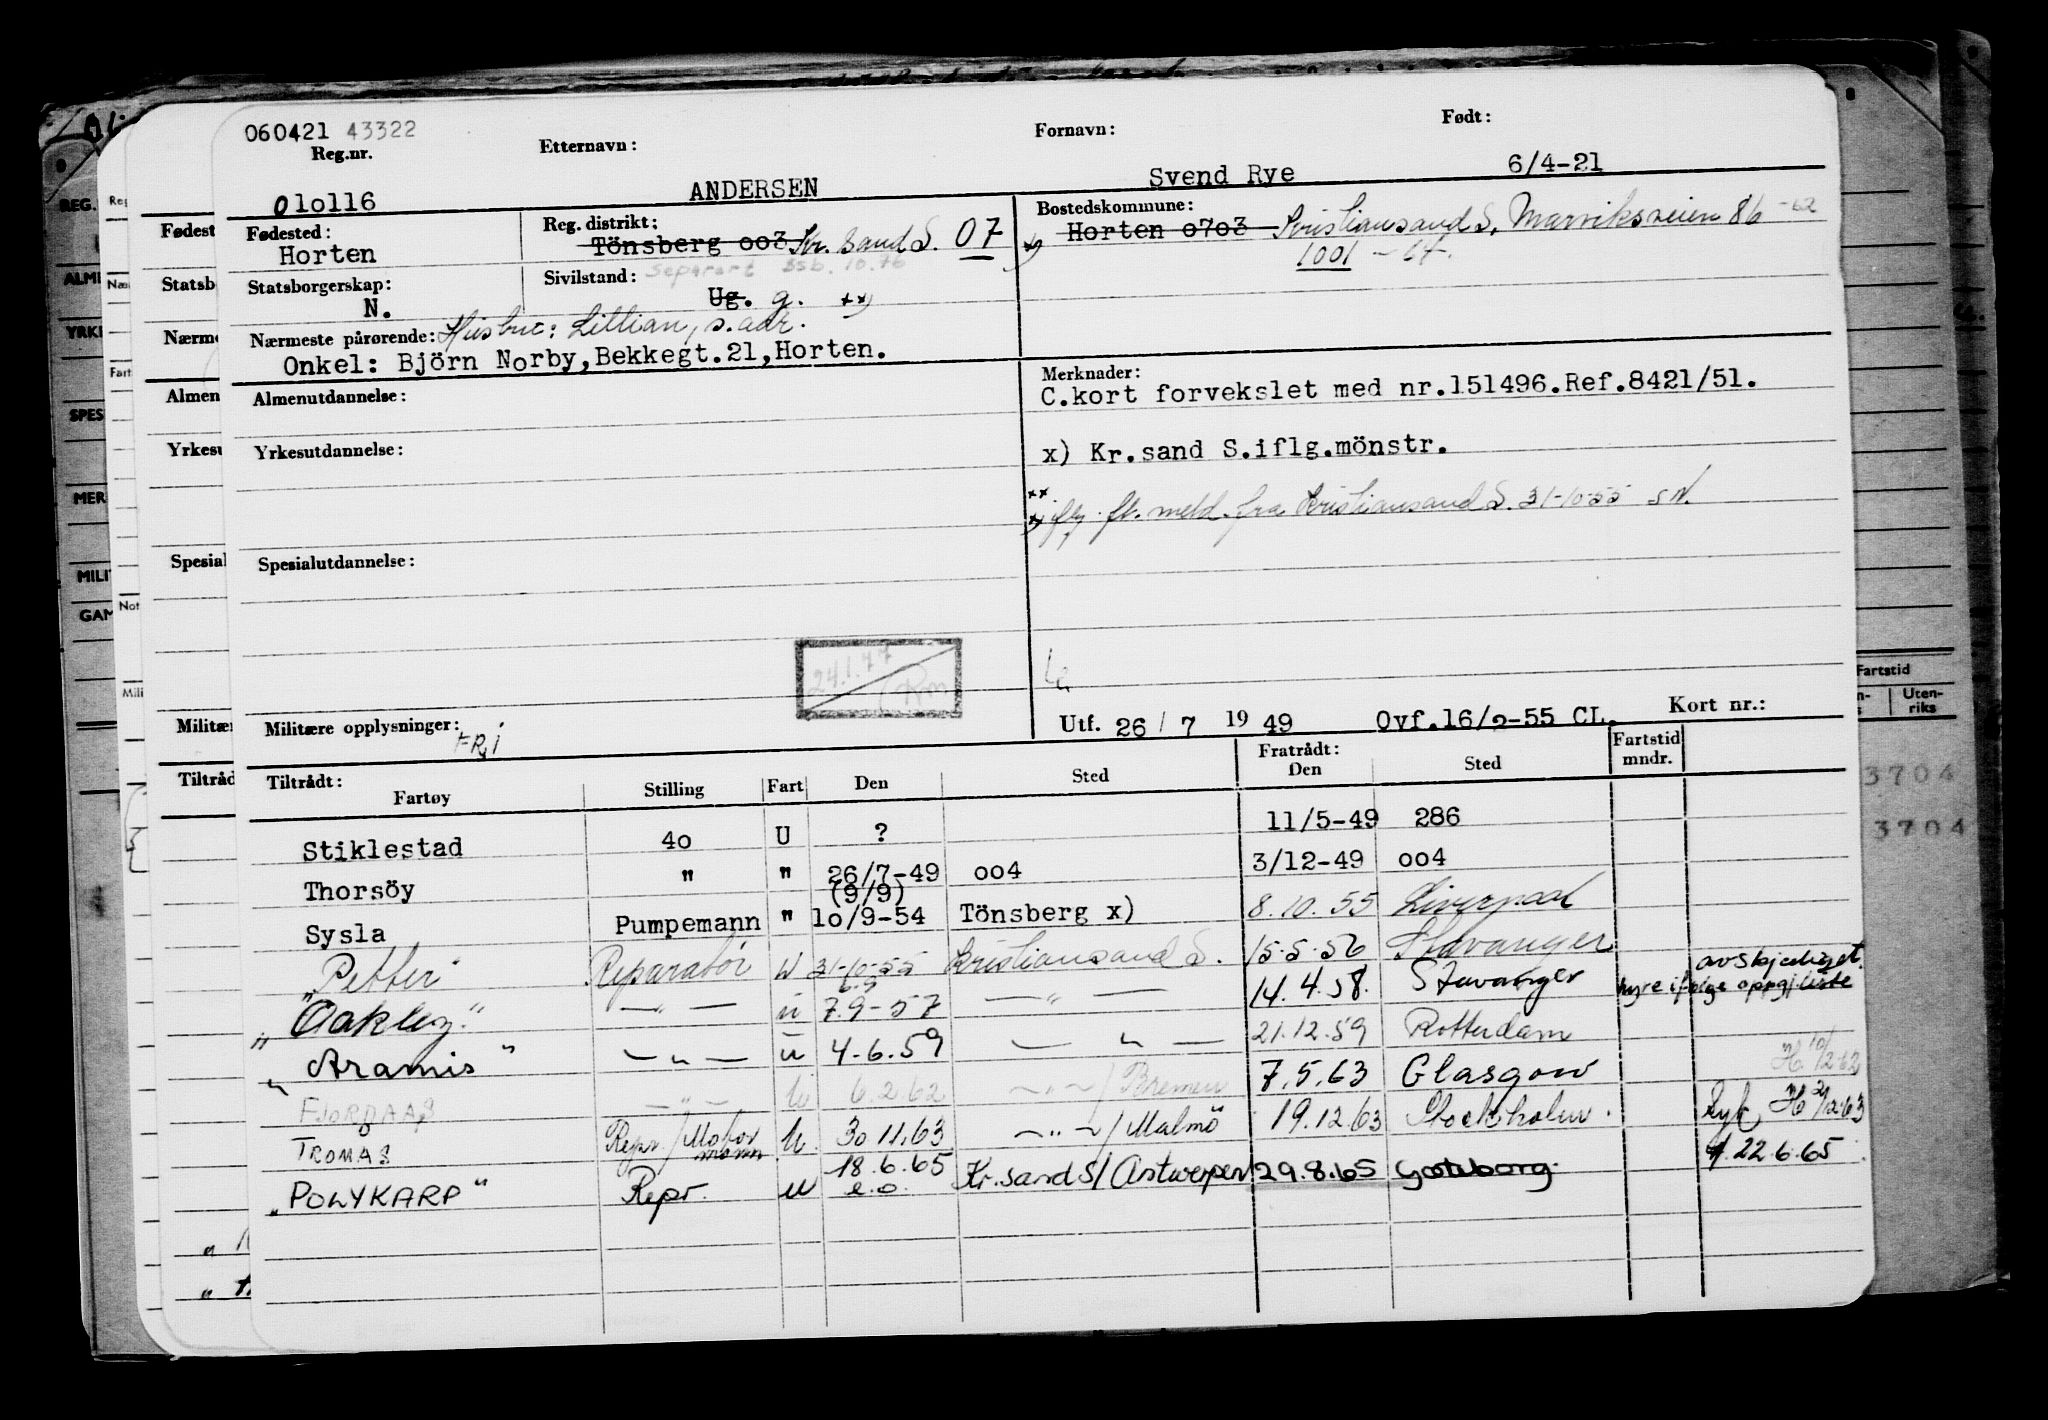 060421 43322
Reg.nr. Etternavn: Fornavn: Født:
010116 ANDERSEN Svend Rye 6/4-21
Fødested: Reg. distrikt: Bostedskommune:
Horten Tönsberg 003 Kr. sand S. 07 x) Horten 0703 Kristiansand S, Marviksveien 86 -62
1001 -64.
Statsborgerskap: Sivilstand: Separert 10.76
N. Ug. g. xx)
Nærmeste pårørende: Hustru: Lillian, s. adr.
Onkel: Björn Norby, Bekkegt.21, Horten.
Almenutdannelse: Merknader:
C.kort forvekslet med nr.151496.Ref.8421/51.
Yrkesutdannelse: x) Kr.sand S.iflg.mönstr.
xx) iflg. fl. meld. fra Kristiansand S. 31-10-55 SN.
Spesialutdannelse:
24.1.77
Rm
Militære opplysninger: FRI Utf. 26/7 1949 Ovf.16/2-55 CL. Kort nr.:
Tiltrådt: Fratrådt: Fartstid
Fartøy Stilling Fart Den Sted Den Sted mndr.
Stiklestad 40 U ? 11/5-49 286
Thorsöy " " 26/7-49 004 3/12-49 004
(9/9)
Sysla Pumpemann " 10/9-54 Tönsberg x) 8.10.55 Liverpool
"Petter" Reparatör U 31-10-55 Kristiansand S. 15-5-56 Stavanger
"Oakley" — " — U 7.9-57 — " — 14.4.58. Stavanger hyre ifølge oppgj.liste avskjediget.
"Aramis" — " — U 4-6.59 — " — 21.12.59 Rotterdam
FJORDAAS — " — U 6.2.62 — " — / Bremen 7.5.63 Glasgow H 10/2-62
TROMAS Repr/Motormann U. 30 11.63 — " — / Malmö 19.12.63 Stockholm. H 3/12-63
"POLYKARP" Repr. U 18.6.65 e.o. Kr.sand S/ Antwerpen 29.8.65 Goteborg. 22.6.65
REG.
ALM
YRK
SPES
MER
MILI
GAM
Fødest
Statsb
Nærm
Almen
Yrkesu
Spesial
Militær
Tiltråd
Fartstid
Uten-
riks
3704
3704